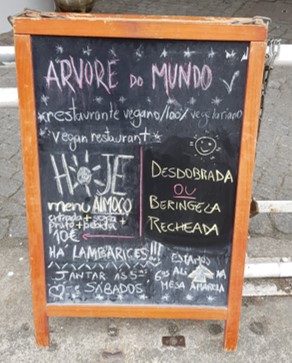 ARVORE DO MUNDO
restaurante vegano/100% vegetariano
vegan restaurant
HOJE
menu ALMOÇO
entrada + sopa +
prato + bebida
10€
DESDOBRADA
OU
BERINGELA
RECHEADA
HÁ LAMBARICES!!!
JANTAR ÀS 5ªS
SÁBADOS
ESTAMOS
MESA AMARELA